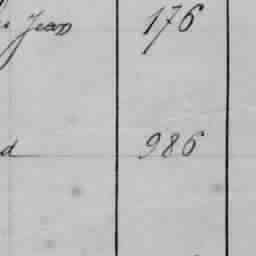 Jean 176
d 986